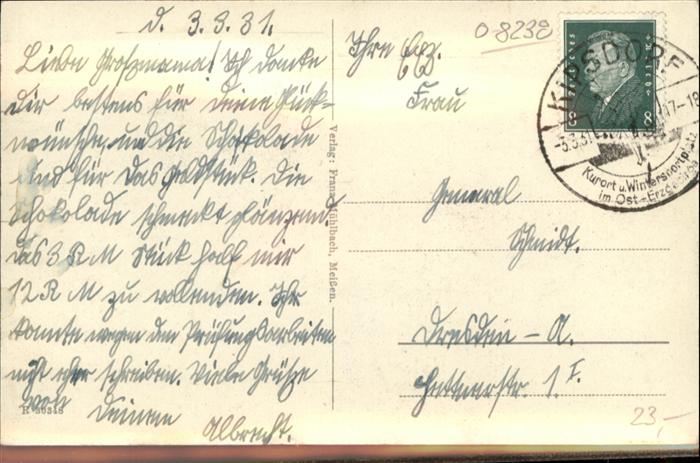 d. 3.3.31.
Liebe Großmama! Ich danke
dir bestens für deine Glück-
wünsche, und die Schokolade
und für das Geldstück. Die
Schokolade schmeckt glänzend
das 3 R M Stück half mir
12 R M zu vollenden. Ich
konnte wegen den Prüfungsarbeiten
nicht eher schreiben. Viele Grüße
von Deinem
Albrecht.
R 36348
Verlag: Franz Mühlbach, Meißen.
Ihre Exz.
Frau
General
Schmidt.
Dresden - A.
Hettnerstr. 1 I.
08238
8 8
KIPSDORF
-3.3.31 17-18
Kurort u. Wintersportplatz
im Ost-Erzgeb
23,-